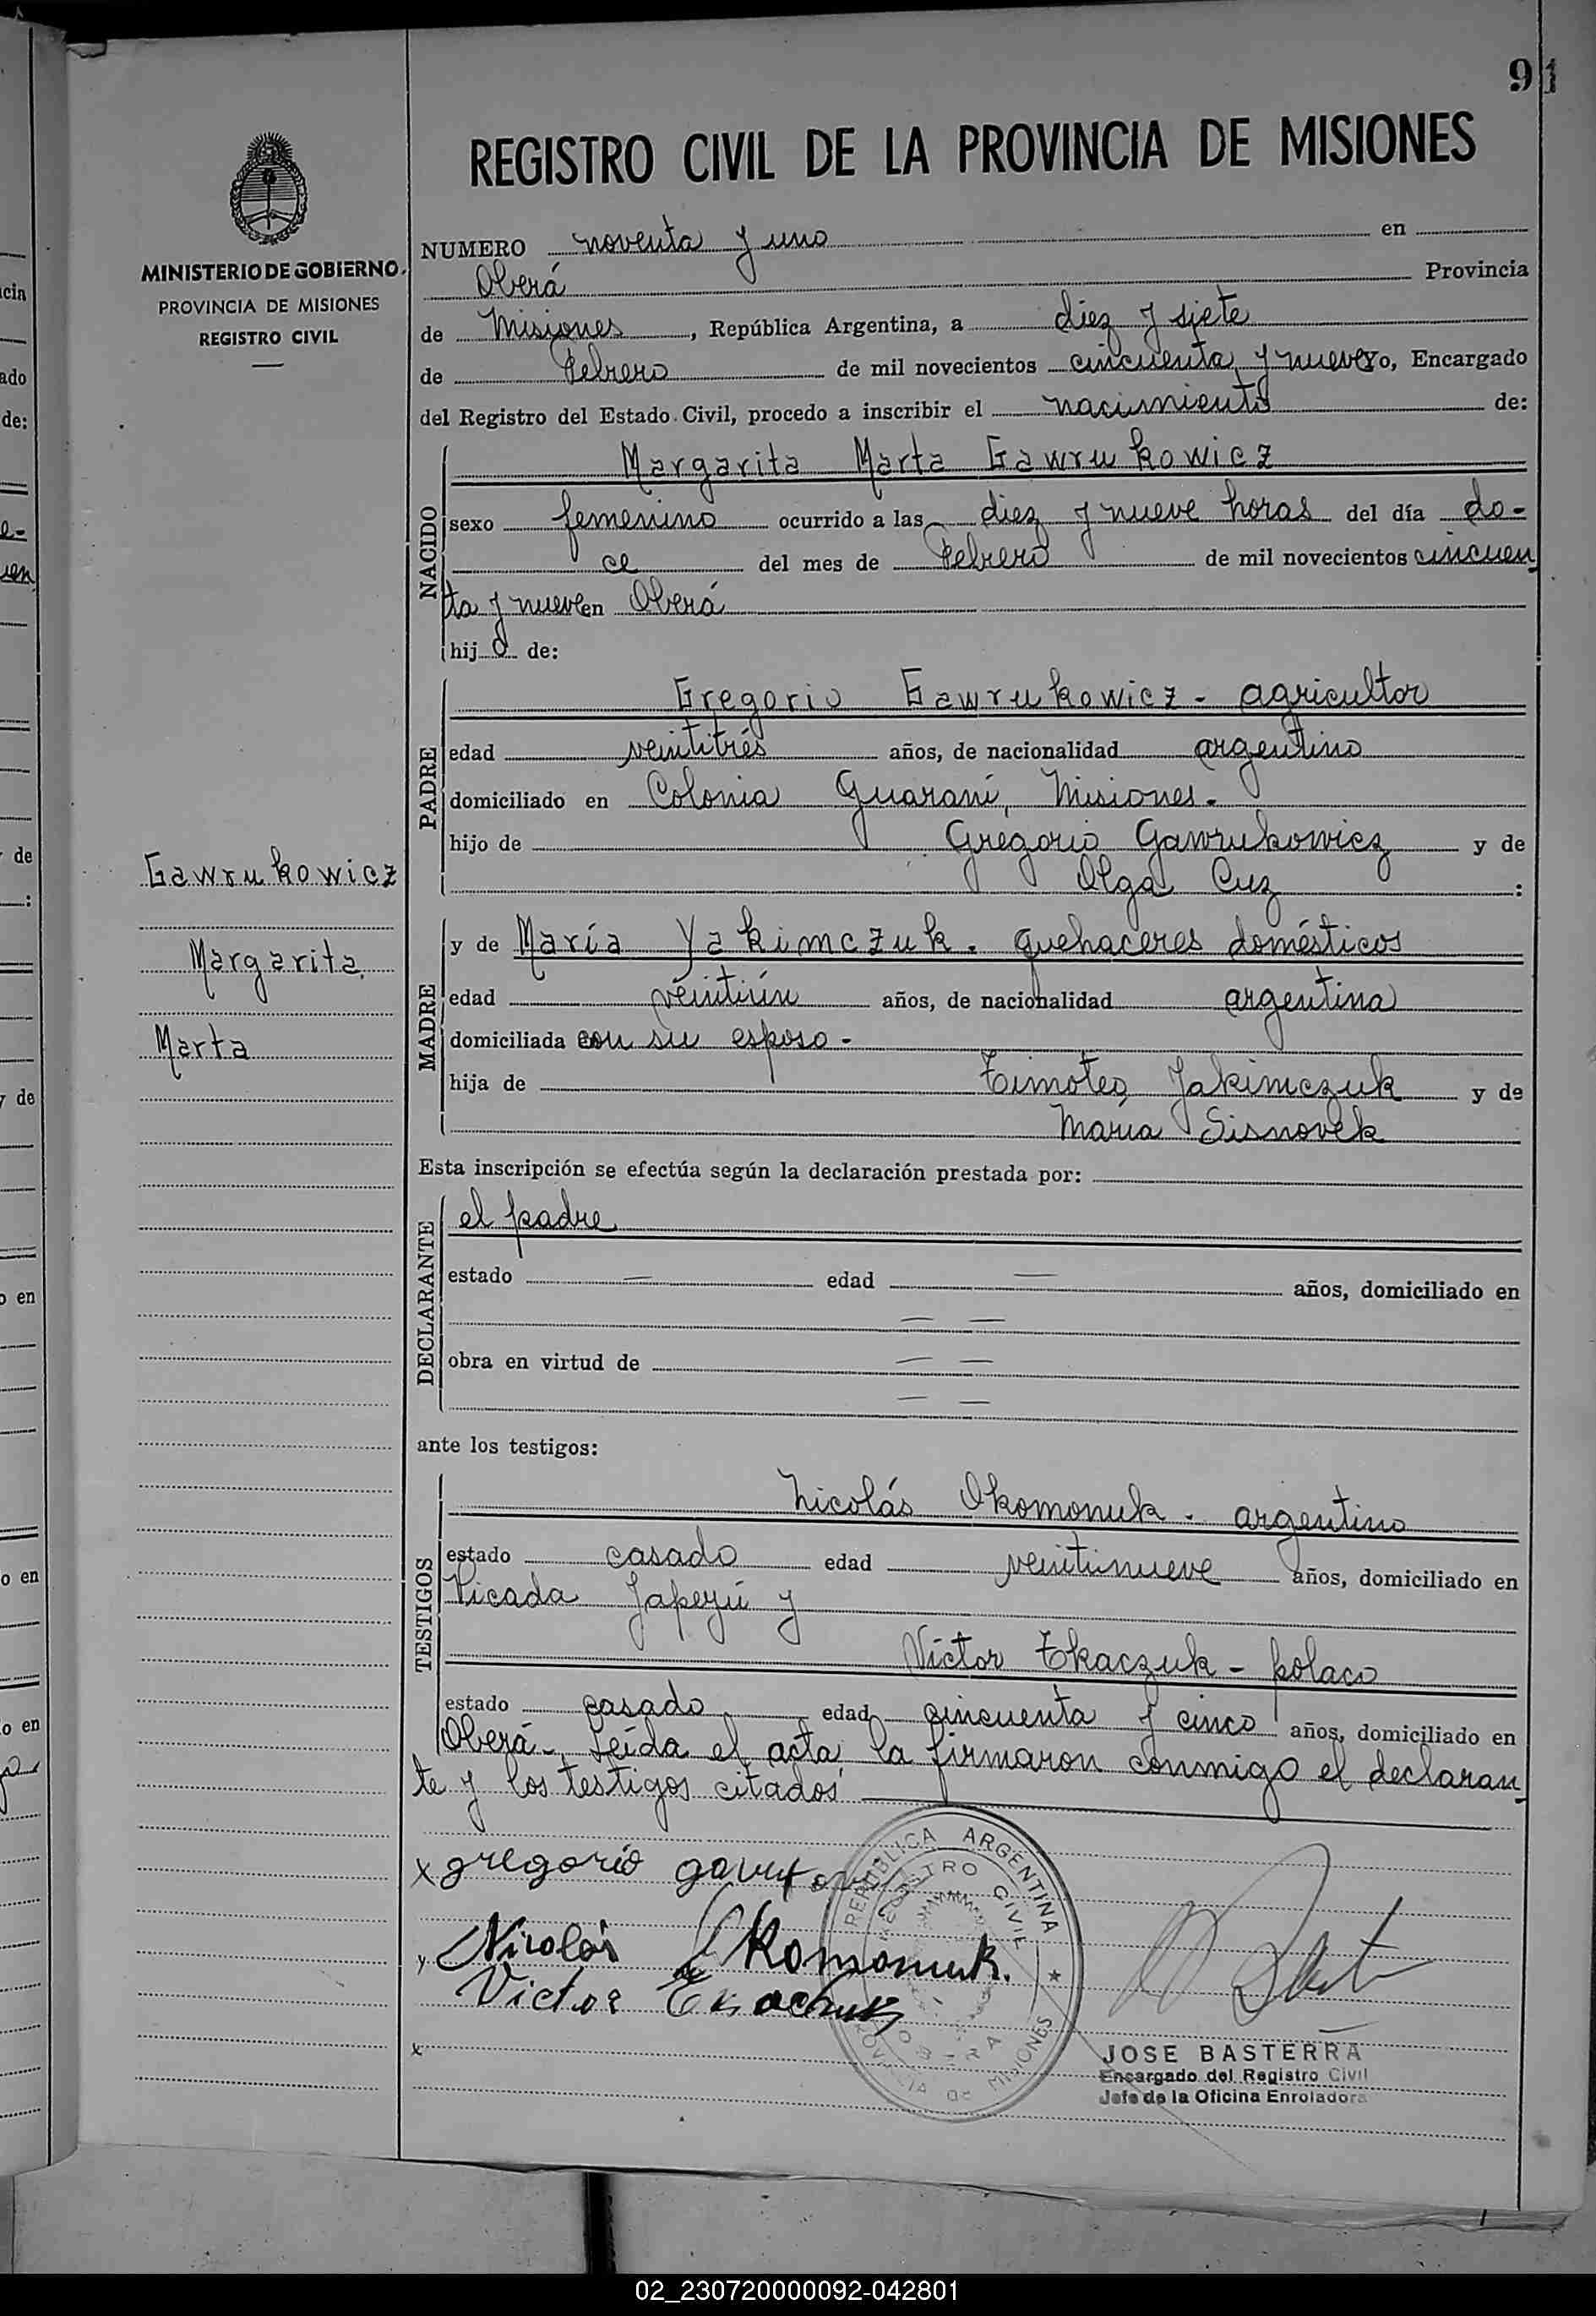 91
REGISTRO CIVIL DE LA PROVINCIA DE MISIONES
MINISTERIO DE GOBIERNO
PROVINCIA DE MISIONES
REGISTRO CIVIL
NUMERO noventa y uno en
Oberá Provincia
de Misiones, República Argentina, a diez y siete
de Febrero de mil novecientos cincuenta y nueve yo, Encargado
del Registro del Estado Civil, procedo a inscribir el nacimiento de:
NACIDO
Margarita Marta Gawrukowicz
sexo femenino ocurrido a las diez y nueve horas del día do-
ce del mes de Febrero de mil novecientos cincuen
ta y nueve en Oberá
hija de:
PADRE
Gregorio Gawrukowicz - agricultor
edad veintitrés años, de nacionalidad argentino
domiciliado en Colonia Guaraní, Misiones.
hijo de Gregorio Gawrukowicz y de
Olga Cuz :
Gawrukowicz
Margarita
Marta
MADRE
y de María Yakimczuk. quehaceres domésticos
edad veintiún años, de nacionalidad argentina
domiciliada con su esposo -
hija de Timoteo Jakimczuk y de
María Sisnovek
Esta inscripción se efectúa según la declaración prestada por:
DECLARANTE
el padre
estado — edad — años, domiciliado en
— —
obra en virtud de — —
— —
ante los testigos:
TESTIGOS
Nicolás Okomonuk. argentino
estado casado edad veintinueve años, domiciliado en
Picada Yapeyú y
Víctor Tkaczuk - polaco
estado casado edad cincuenta y cinco años, domiciliado en
Oberá-. Leída el acta la firmaron conmigo el declaran
te y los testigos citados
x gregorio
Nicolás Okomonuk.
Victor
REPUBLICA ARGENTINA
REGISTRO CIVIL
OBERA
PROVINCIA DE MISIONES
JOSE BASTERRA
Encargado del Registro Civil
Jefe de la Oficina Enroladora
02_230720000092-042801